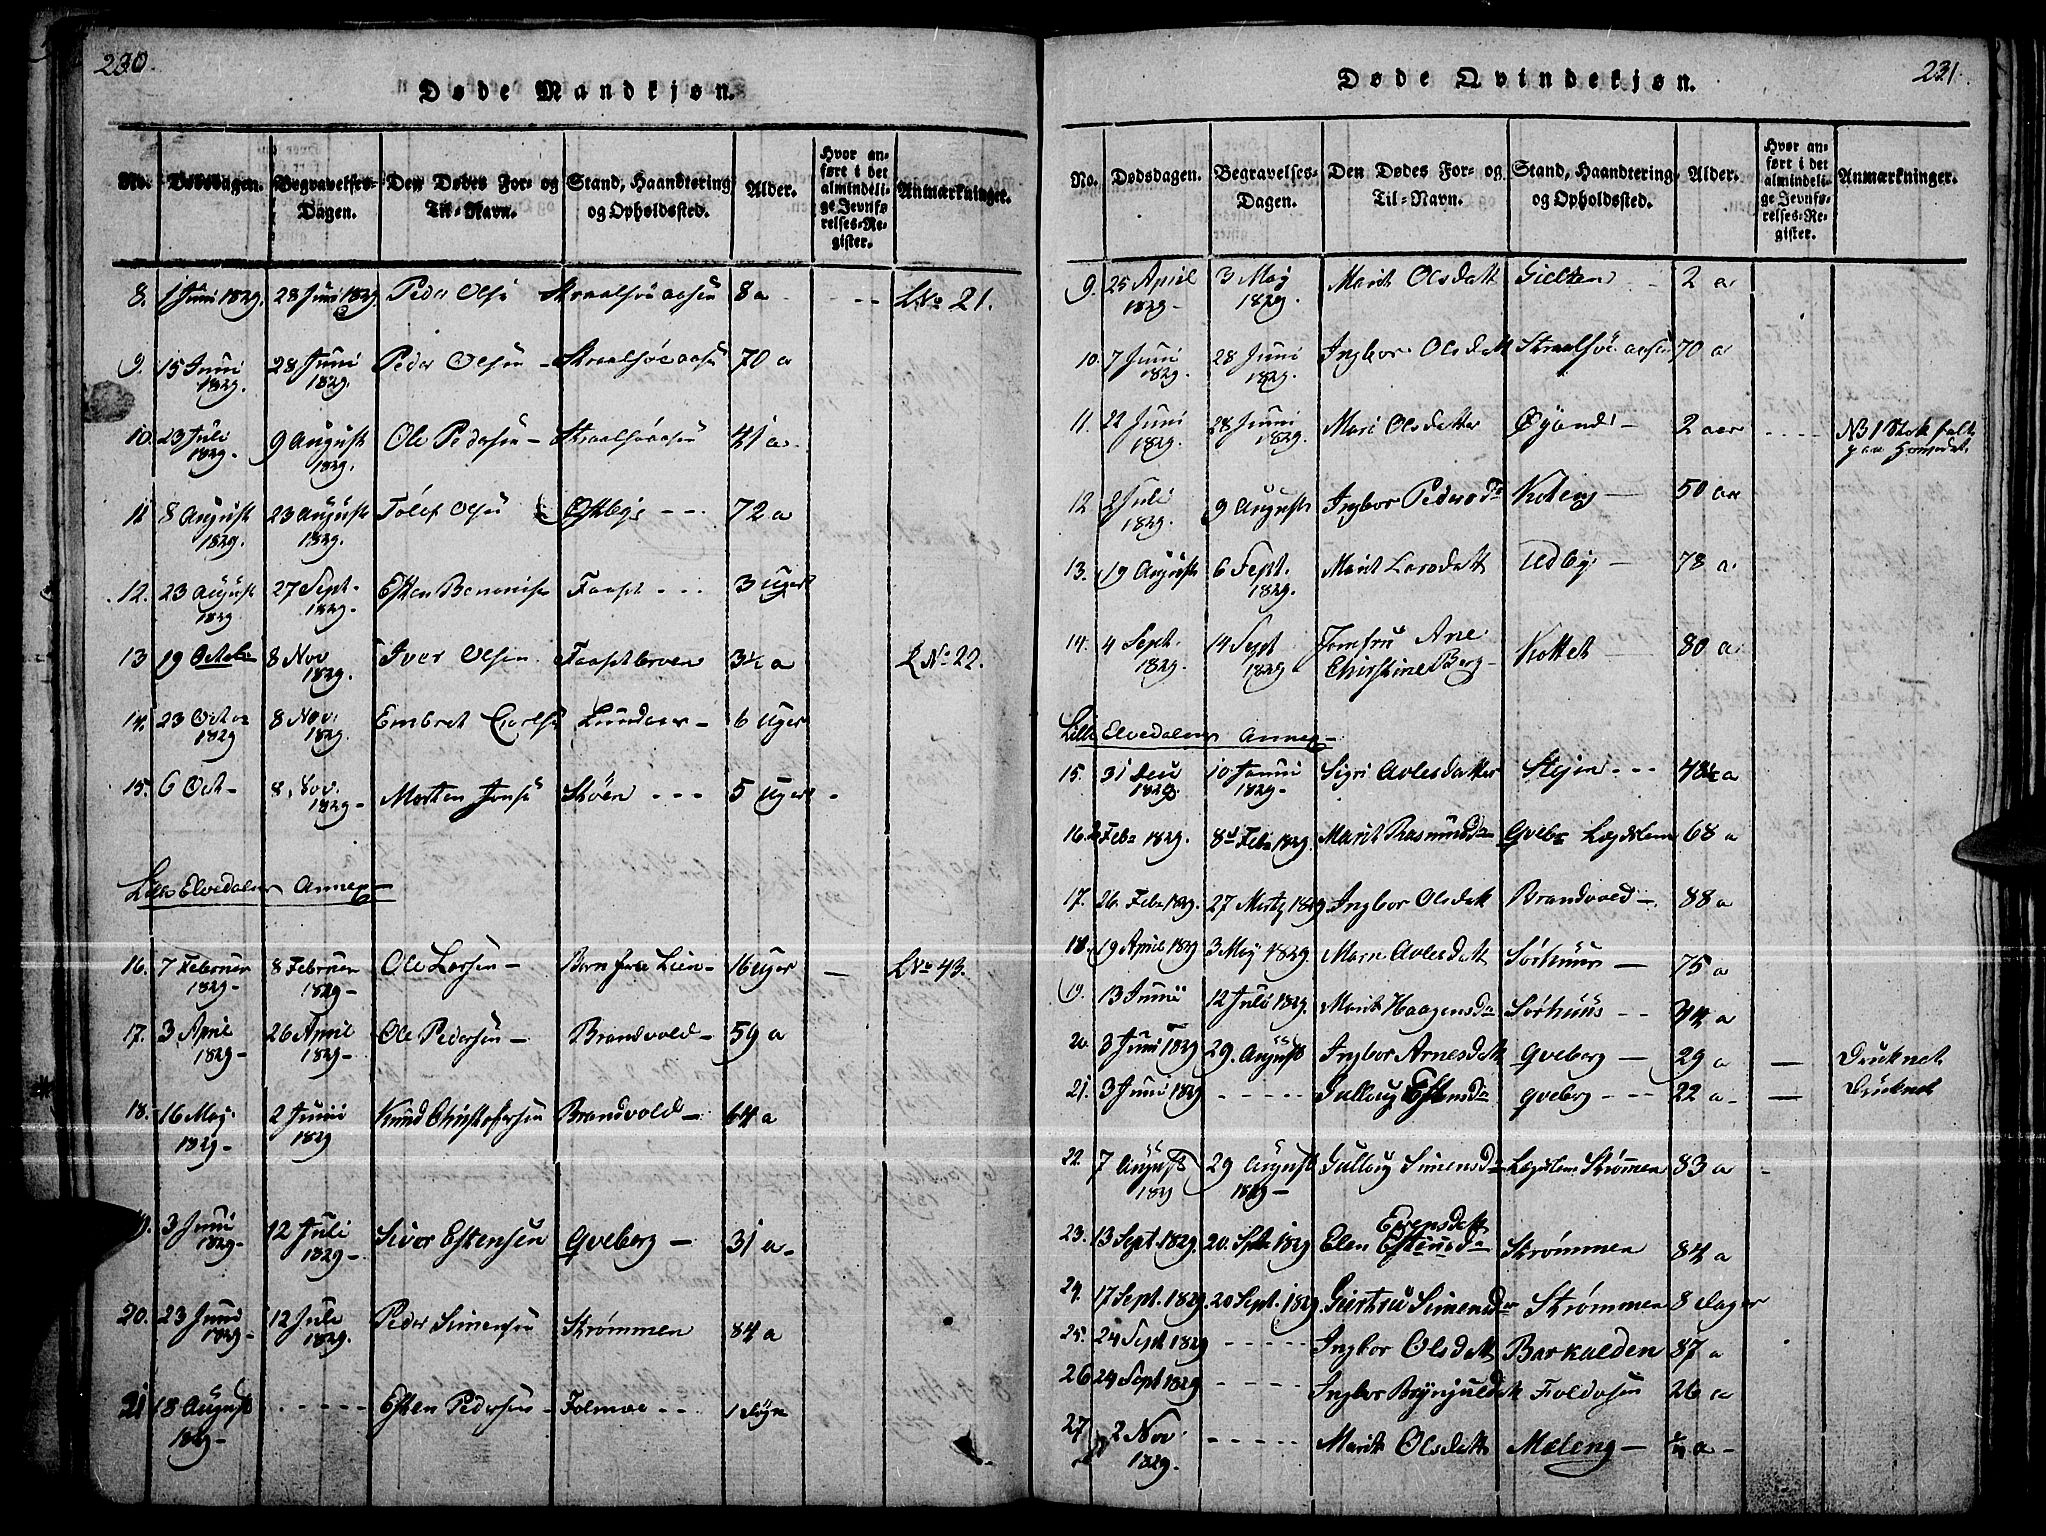 230.
Døde Mandkjøn.
No. Dødsdagen. Begravelses-Dagen. Den Dødes For- og Til-Navn. Stand, Haandtering og Opholdssted. Alder. Hvor anført i det almindelige Jevnførelses-Register. Anmærkninger.
8. 1 Juni 1829. 28 Juni 1829 Peder Olsen Straalsøeaasen 8 a - - - LNo 21.
9. 15 Juni 1829. 28 Juni 1829. Peder Olsen - Straalsøeaasen 70 a
10. 23 Juli 1829. 9 August 1829. Ole Pedersen - Straalsøeaasen 41 a
11 8 August 1829. 23 August 1829. Tolef Olsen Østbye - - - 72 a
12. 23 August 1829. 27 Sept. 1829. Esten Bononisen Faaset - - - 3 Uger
13 19 Octobr 8 Nov 1829. Iver Olsen Faasetbroen 3½ a LNo 22.
14. 23 Octor 1829 8 Nov. 1829. Embret Carlsen Lundaas - 6 Uger
15. 6 Oct - 8. Nov. 1829 - Morten Jonsen Skøen - - - 5 Uger -
Lille Elvedalens Annex -
16. 7 Februar 1829 - 8 Februar 1829 - Ole Larsen - Barn Lien - 16 Uger - LNo 43.
17. 3 April 1829 - 26 April 1829 - Ole Pedersen - Brandvold - 59 a
18. 16 Maj 1829 - 2 Junii 1829 Knud Christophersen Brandvold - 64 a
19. 3 Juni 1829 - 12 Juli 1829 - Siver Estensen Qveberg - 31 a -
20. 23 Juni 1829 - 12 Juli 1829. Peder Simensen Strømmen 84 a
21 18 August 1829 - - - - - - Esten Pedersen - - - 1 døgn
231.
Døde Qvindekjøn.
No. Dødsdagen. Begravelses-Dagen. Den Dødes For- og Til-Navn. Stand, Haandtering og Opholdssted. Alder. Hvor anført i det almindelige Jevnførelses-Register. Anmærkninger.
9. 25 April 1829 - 3 Maj 1829. Marit Olsdatt Gielten - 2 a
10. 7 Juni 1829. 28 Juni 1829. Ingbor Olsdatt Straalsøeaasen 70 a
11. 22 Juni 1829. 28 Juni 1829. Mari Olsdatter Øyan - 2 aar - - - - NB
12 2 Juli 1829. 9 August Ingbor Pedersdr Koteng - 50 aar
13. 19 August 6 Sept. 1829. Marit Larsdatt Udby - 78 a
14. 4 Sept. 1829. 14 Sept 1829 Jomfru Ane Christine Berg - Kottet - 80 a
Lille Elvedalens Annex -
15. 31 1829. 10 1829 - Sigri Avlesdatter Stejen - - - 48½ a
16. 2 Febr 1829. 8d Febr 1829. Marit Rasmusdr Qvebr Lægdslem 68 a
17. 26 Febr 1829. 27 Martz 1829 Ingbor Olsdatt Brandvold - 88 a
18. 19 April 1829 3 Maj 1829 Marn Avlesdatt Sørhuus - 75 a
19. 13 Junii 12 Juli 1829. Marit Haagensdr Sørhuus - - 34 a
20. 3 Juni 1829 29. August Ingbor Arnesdatt Qveberg - 29 a - Druknet
21. 3 Juni 1829 - - - - - Gulloug Estensdr Qveberg - - - 22 a - - Druknet
22. 7 August 1829 29 August 1829 - Gulloug Simensdr Lægslem Strømmen 83 a -
23. 13 Sept. 1829 20. Sptr 1829 Elen Estensdr Evensdatt Strømmen 84 a
24. 17 Sept. 1829 20 Sept. 1829 Giertrud Simensdr Strømmen 8 dager
25. 24 Sept 1829 - - - - - Ingbor Olsdatt Barkalden 87 a
26 24 Sept 1829 - - - - Ingbor Brynjulsdatt Foldasen 26 a
27 2 Nov. 1829. - - - - - Marit Olsdatt Mæleng - ¼ a -